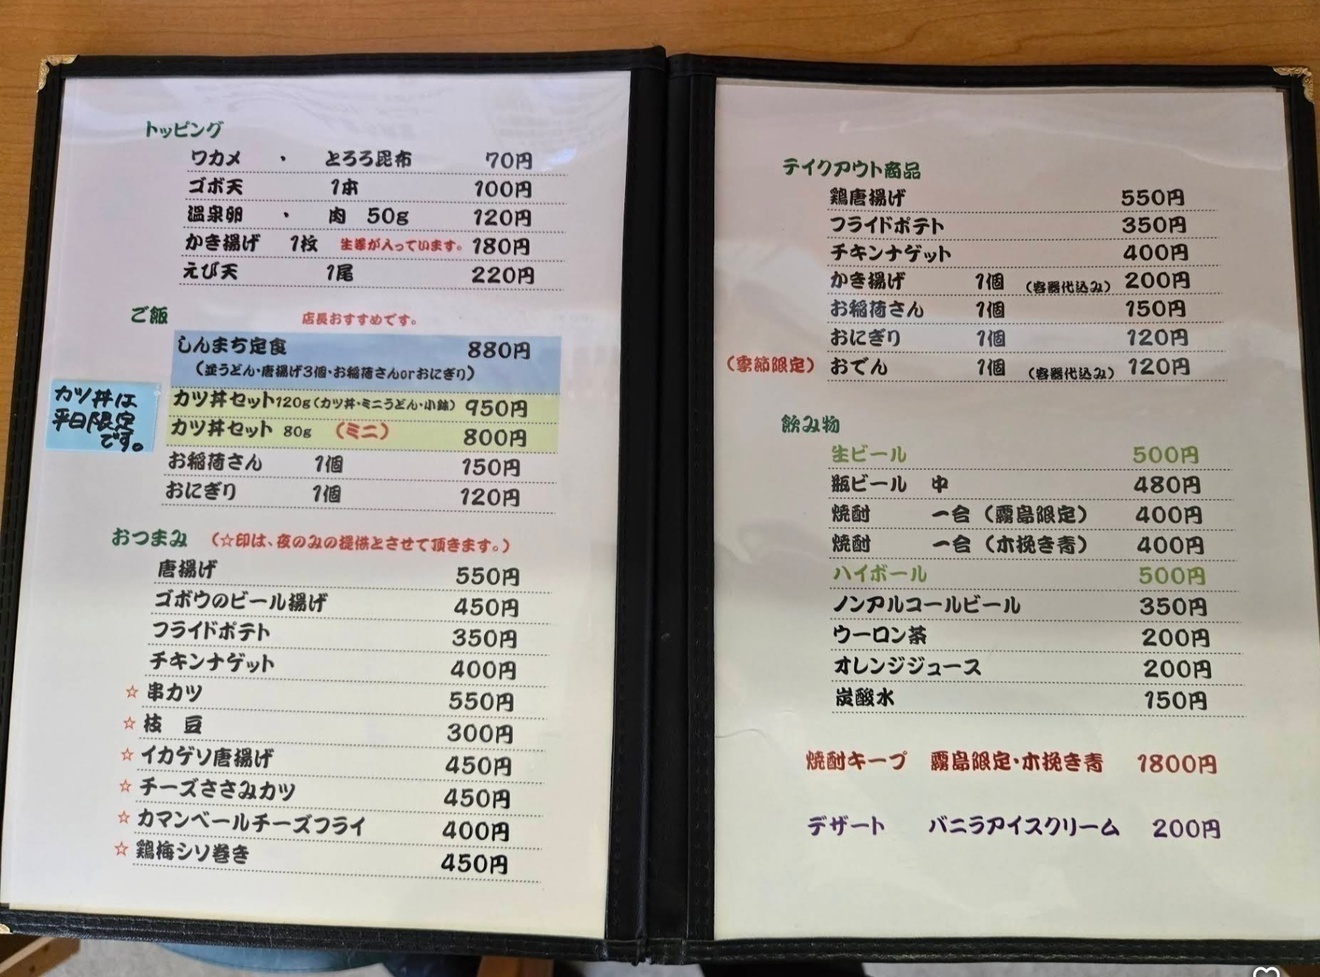 トッピング
ワカメ ・ とろろ昆布 70円
ゴボ天 1本 100円
温泉卵 ・ 肉 50g 120円
かき揚げ 1枚 生姜が入っています。 180円
えび天 1尾 220円
ご飯 店長おすすめです。
しんまち定食 880円
(並うどん・唐揚げ3個・お稲荷さんorおにぎり)
カツ丼は
平日限定
です。
カツ丼セット120g(カツ丼・ミニうどん・小鉢) 950円
カツ丼セット 80g (ミニ) 800円
お稲荷さん 1個 150円
おにぎり 1個 120円
おつまみ (☆印は、夜のみの提供とさせて頂きます。)
唐揚げ 550円
ゴボウのビール揚げ 450円
フライドポテト 350円
チキンナゲット 400円
☆ 串カツ 550円
☆ 枝 豆 300円
☆ イカゲソ唐揚げ 450円
☆ チーズささみカツ 450円
☆ カマンベールチーズフライ 400円
☆ 鶏梅シソ巻き 450円
テイクアウト商品
鶏唐揚げ 550円
フライドポテト 350円
チキンナゲット 400円
かき揚げ 1個 (容器代込み) 200円
お稲荷さん 1個 150円
おにぎり 1個 120円
(季節限定) おでん 1個 (容器代込み) 120円
飲み物
生ビール 500円
瓶ビール 中 480円
焼酎 一合 (霧島限定) 400円
焼酎 一合 (木挽き青) 400円
ハイボール 500円
ノンアルコールビール 350円
ウーロン茶 200円
オレンジジュース 200円
炭酸水 150円
焼酎キープ 霧島限定・木挽き青 1800円
デザート バニラアイスクリーム 200円